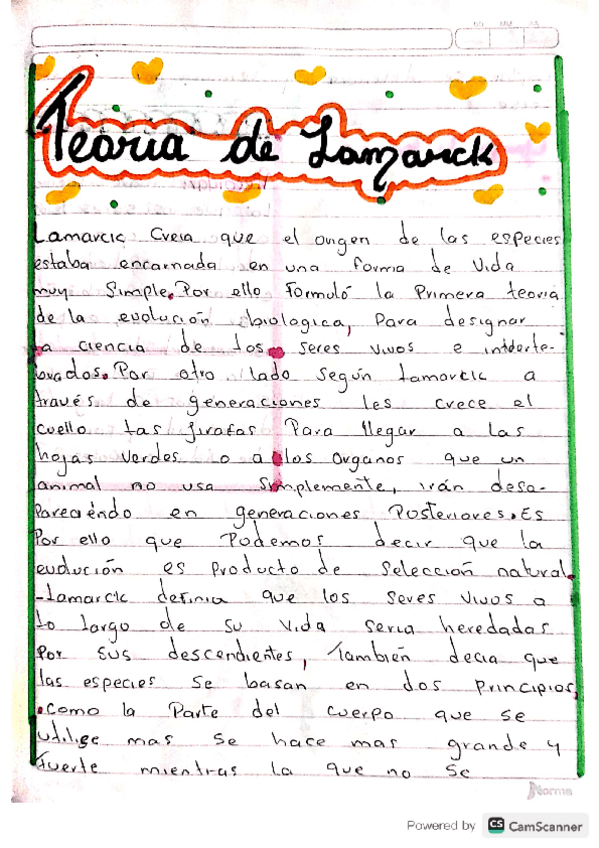 Teoria de Lamarck
Lamarck Creia que el origen de las especies
estaba encarnada en una forma de Vida
muy Simple. Por ello Formuló la Primera teoria
de la evolución biologica, Para designar
la ciencia de los seres vivos e inverte-
brados. Por otro lado Según Lamarck a
través de generaciones les crece el
cuello las jirafas Para llegar a las
hojas verdes o a los Organos que un
animal no usa Simplemente, irán desa-
Pareciéndo en generaciones Posteriores. Es
Por ello que Podemos decir que la
evolución es Producto de Selección natural.
-Lamarck definia que los Seres Vivos a
lo largo de su Vida seria heredadas
Por Sus descendientes, También decia que
las especies Se basan en dos Principios,
.como la Parte del cuerpo que se
utilige mas se hace mas grande y
Fuerte mientras la que no se
Norma
Powered by CS CamScanner